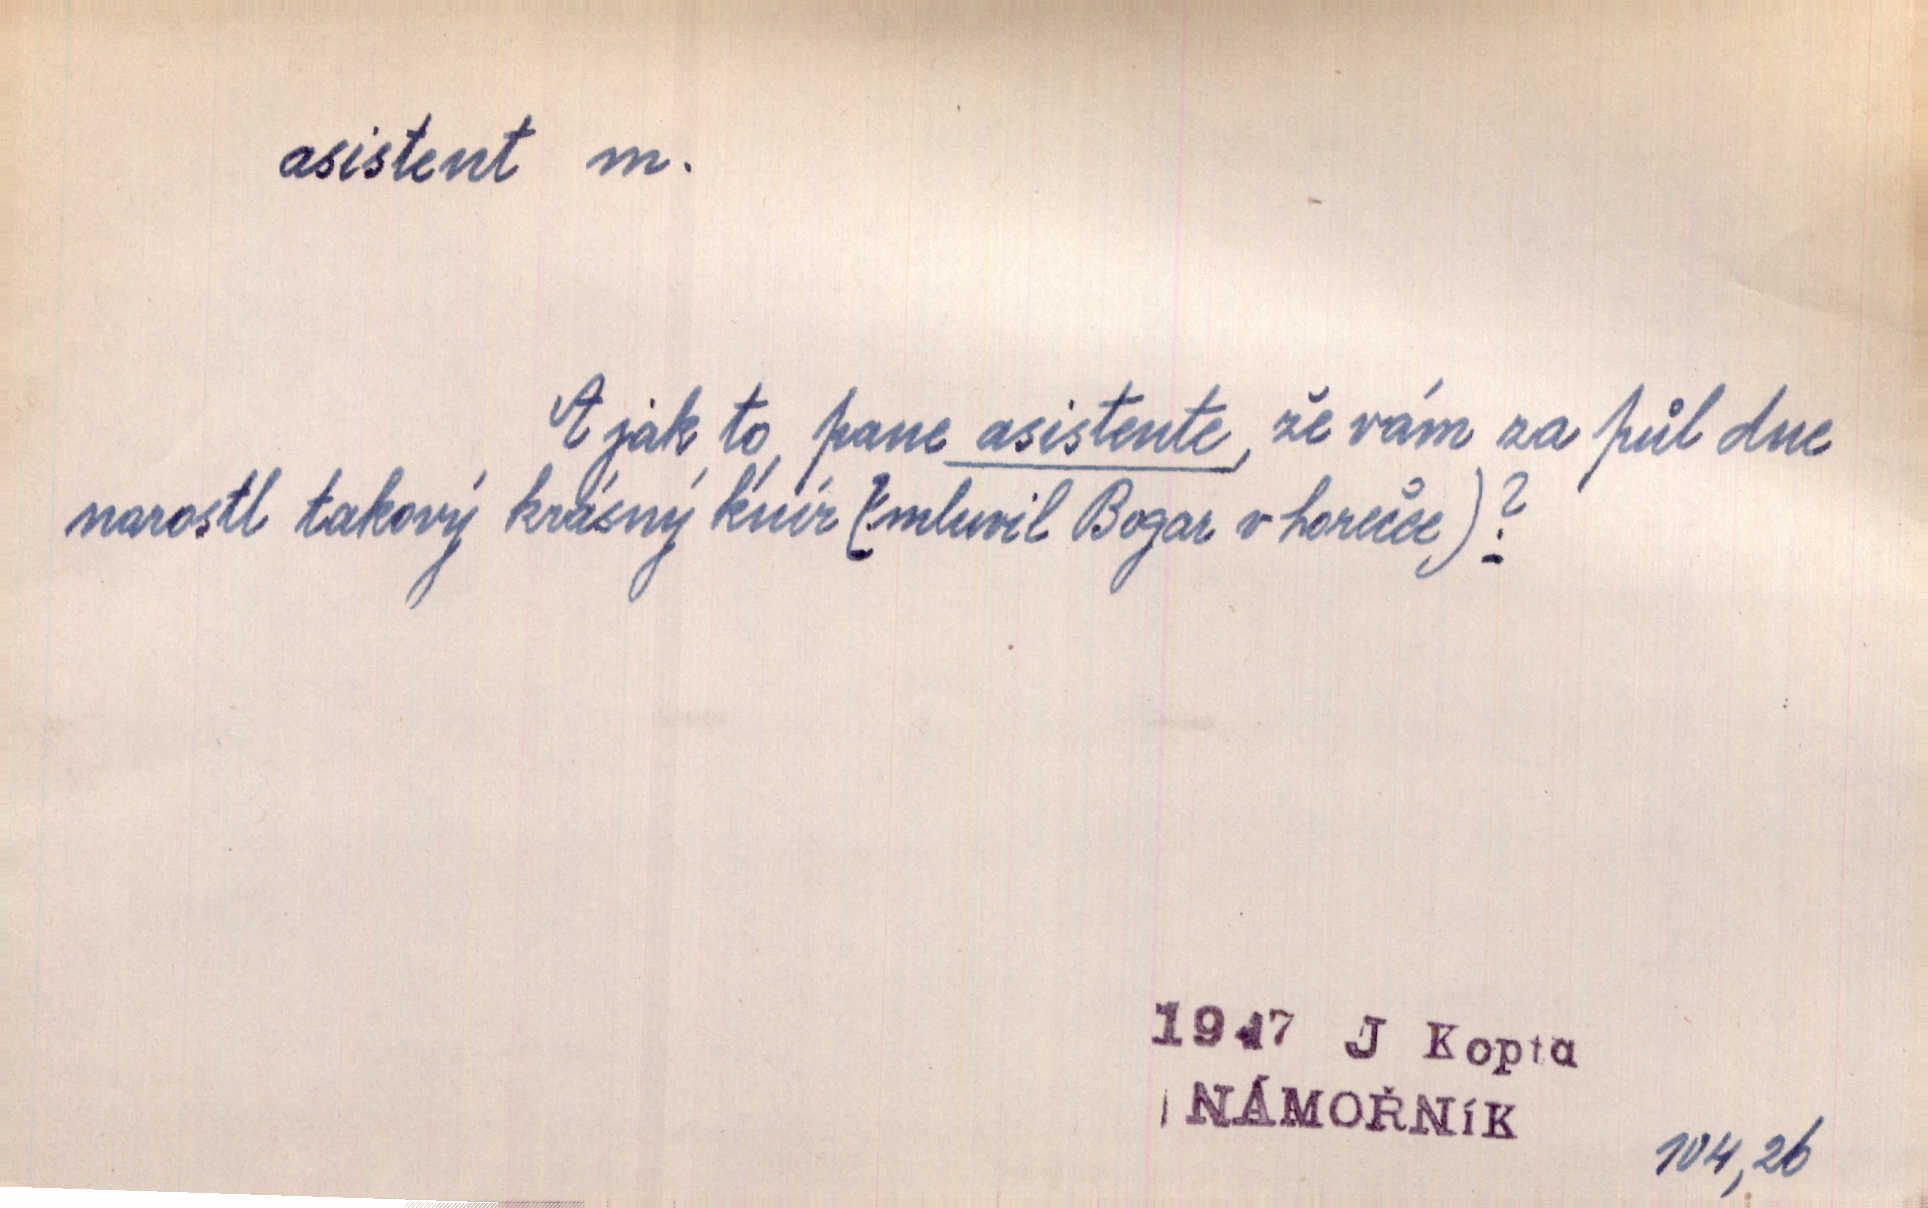 asistent m.
A jak to, pane asistente, že vám za půl dne
narostl takový krásný knír (mluvil Bogar v horečce)?
1947 J Kopta
NÁMOŘNíK
104,26